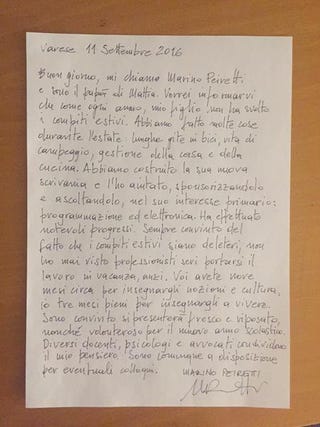 Varese 11 Settembre 2016
Buongiorno, mi chiamo Marino Peiretti
e sono il papà di Mattia. Vorrei informarvi
che come ogni anno, mio figlio non ha svolto
i compiti estivi. Abbiamo fatto molte cose
durante l'estate: lunghe gite in bici, vita di
campeggio, gestione della casa e della
cucina. Abbiamo costruito la sua nuova
scrivania e l'ho aiutato, sponsorizzandolo
e ascoltandolo, nel suo interesse primario:
programmazione ed elettronica. Ha effettuato
notevoli progressi. Sempre convinto del
fatto che i compiti estivi siano deleteri, non
ho mai visto professionisti seri portarsi il
lavoro in vacanza, anzi. Voi avete nove
mesi circa per insegnargli nozioni e cultura,
io tre mesi pieni per insegnargli a vivere.
Sono convinto si presenterà fresco e riposato,
nonché volonteroso per il nuovo anno scolastico.
Diversi docenti, psicologi e avvocati condividono
il mio pensiero. Sono comunque a disposizione
per eventuali colloqui. MARINO PEIRETTI